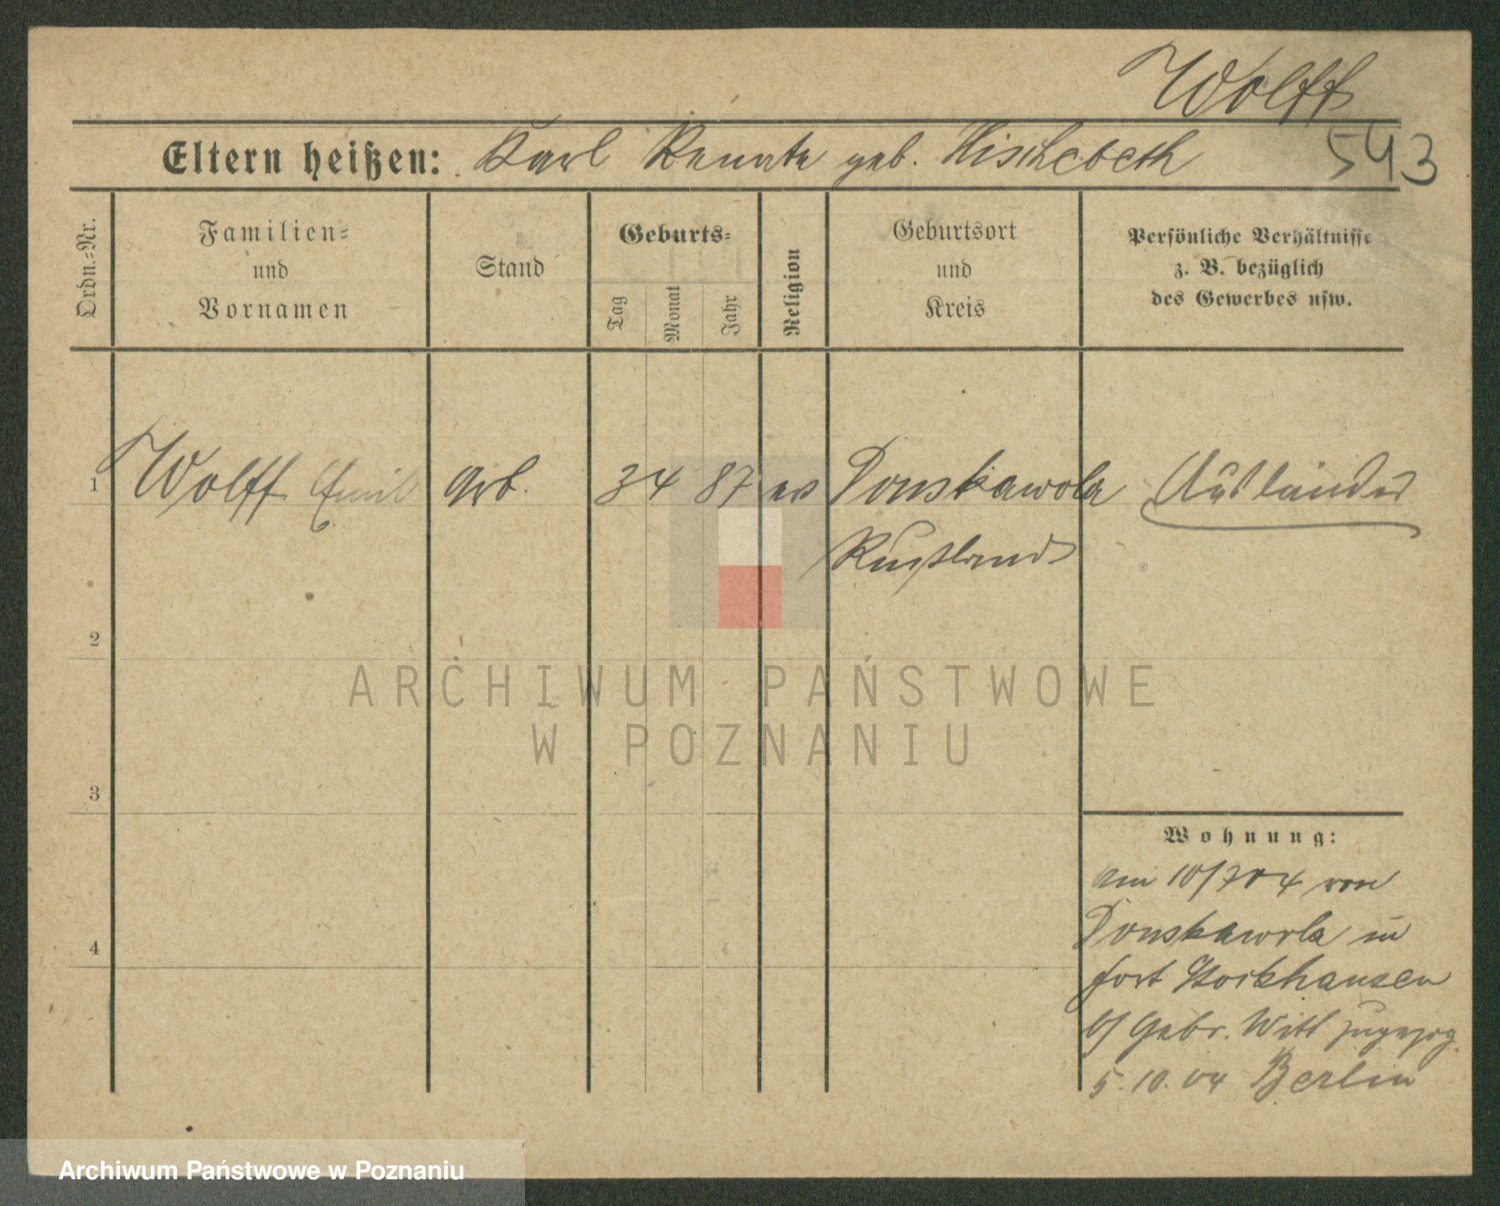 Wolff
543
Eltern heißen: Karl Renate geb. Hischebeth
Ordn.-Nr.
Familien-
und
Vornamen
Stand
Geburts-
Tag
Monat
Jahr
Religion
Geburtsort
und
Kreis
Persönliche Verhältnisse
z. B. bezüglich
des Gewerbes usw.
1 Wolff Emil Arb. 3 4 87 ev Donskawola Ausländer
Russland
2
3
4
ARCHIWUM PAŃSTWOWE
W POZNANIU
Wohnung:
am 10/7 04 von
Donskawola in
Fort Stockhausen
b/ Gebr. Witt zugezog.
5.10.04 Berlin
Archiwum Państwowe w Poznaniu